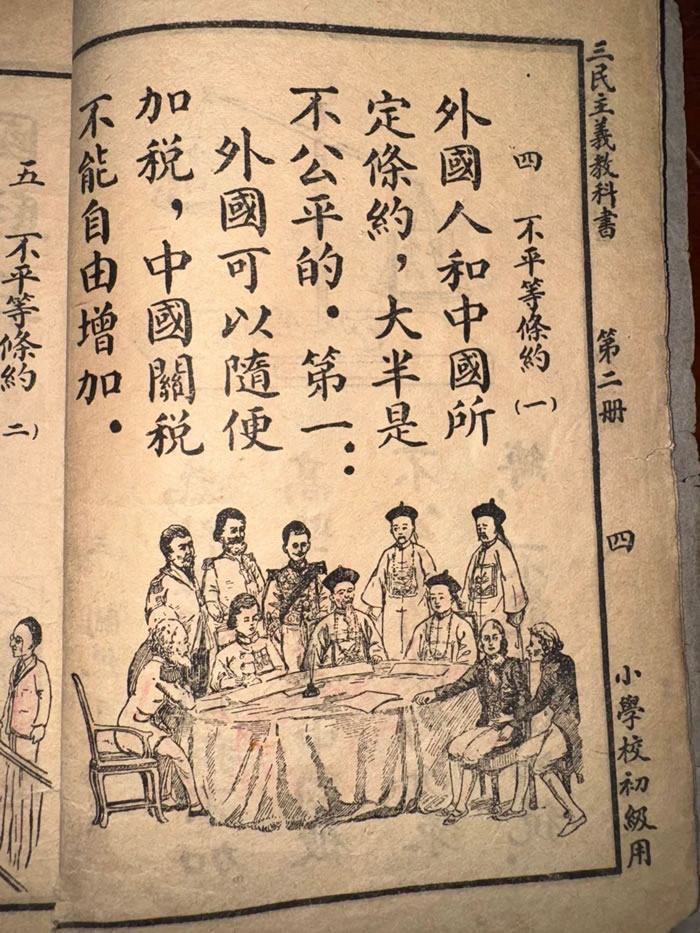 三民主義教科書 第二册 四 小學校初級用
四 不平等條約 (一)
外國人和中國所
定條約，大半是
不公平的．第一：
外國可以隨便
加税，中國關税
不能自由增加．
五 不平等條約 (二)